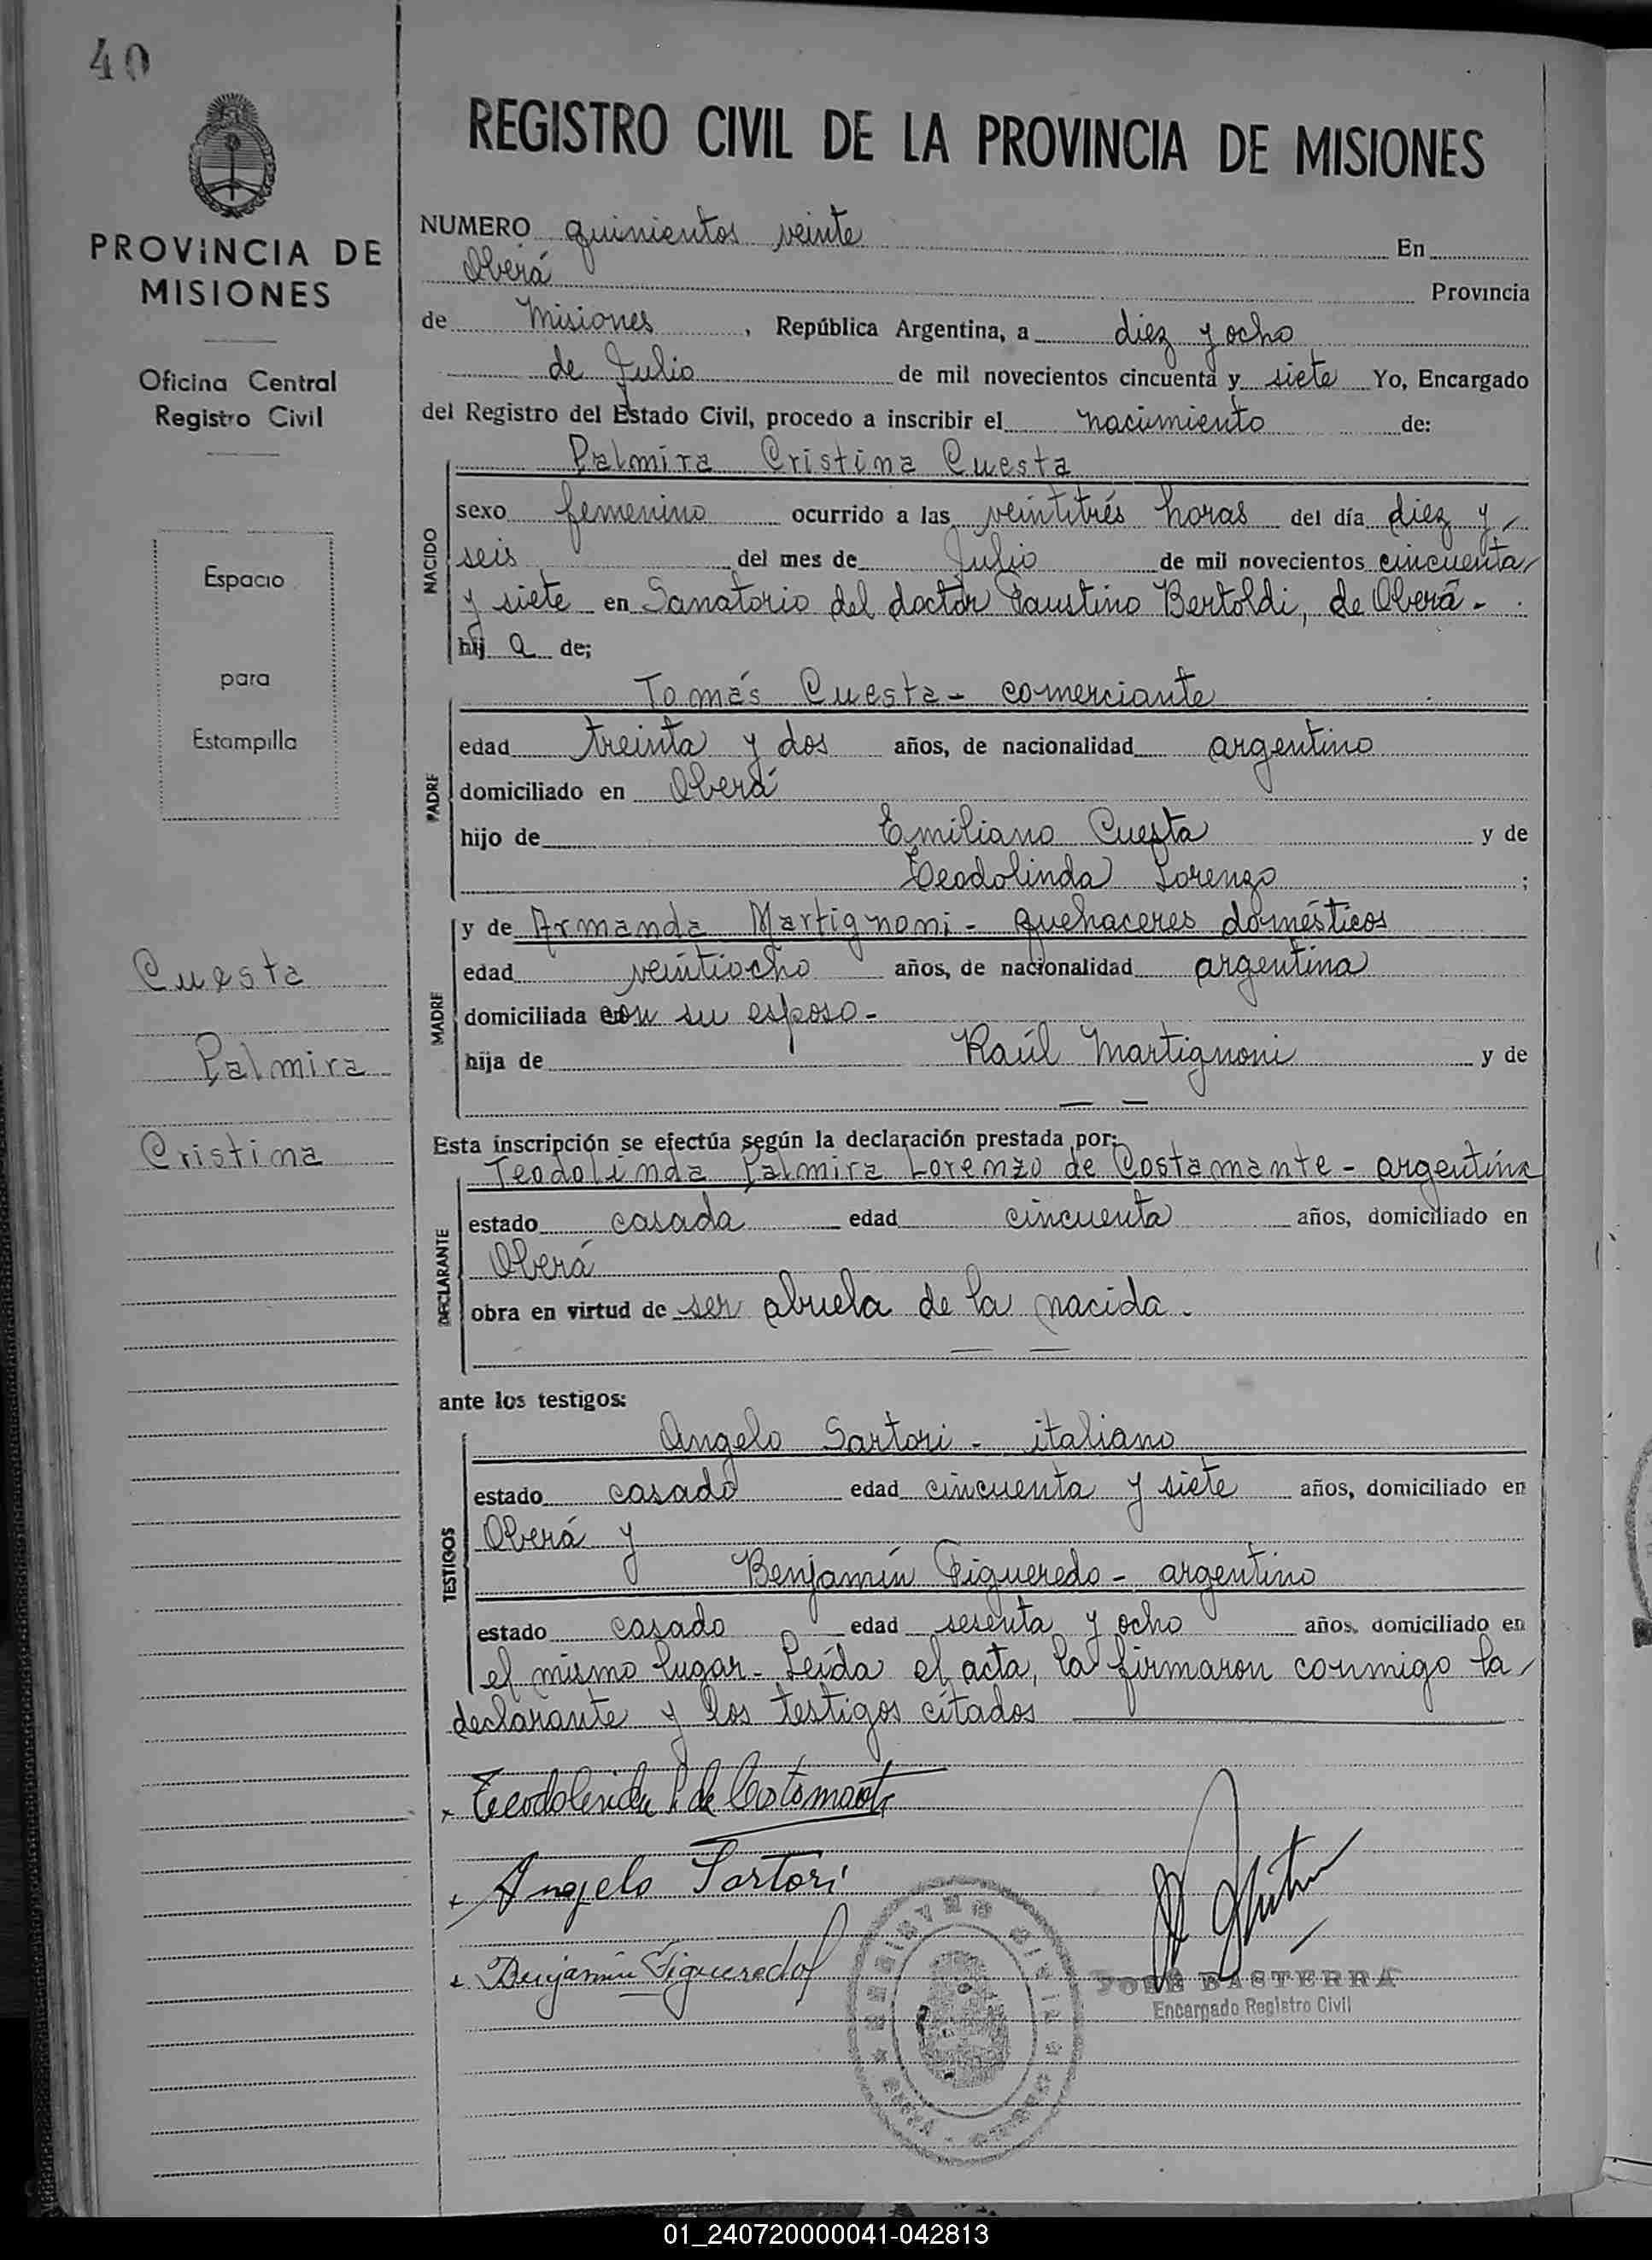 40
REGISTRO CIVIL DE LA PROVINCIA DE MISIONES
PROVINCIA DE
MISIONES
Oficina Central
Registro Civil
Espacio
para
Estampilla
Cuesta
Palmira
Cristina
NUMERO quinientos veinte En
Oberá Provincia
de Misiones, República Argentina, a diez y ocho
de Julio de mil novecientos cincuenta y siete Yo, Encargado
del Registro del Estado Civil, procedo a inscribir el nacimiento de:
Palmira Cristina Cuesta
NACIDO
sexo femenino ocurrido a las veintitrés horas del día diez y
seis del mes de Julio de mil novecientos cincuenta
y siete en Sanatorio del doctor Faustino Bertoldi, de Oberá -
hij a de;
Tomás Cuesta - comerciante
PADRE
edad treinta y dos años, de nacionalidad argentino
domiciliado en Oberá
hijo de Emiliano Cuesta y de
Teodolinda Lorenzo ;
y de Armanda Martignoni - quehaceres domésticos
MADRE
edad veintiocho años, de nacionalidad argentina
domiciliada con su esposo -
hija de Raúl Martignoni y de
— —
Esta inscripción se efectúa según la declaración prestada por:
Teodolinda Palmira Lorenzo de Costamante - argentina
DECLARANTE
estado casada edad cincuenta años, domiciliado en
Oberá
obra en virtud de ser abuela de la nacida -
— —
ante los testigos:
Angelo Sartori - italiano
TESTIGOS
estado casado edad cincuenta y siete años, domiciliado en
Oberá y
Benjamín Figueredo - argentino
estado casado edad sesenta y ocho años, domiciliado en
el mismo lugar - Leída el acta, la firmaron conmigo la
declarante y los testigos citados
Teodolinda L. de Costamante
Angelo Sartori
Benjamín Figueredo
REGISTRO CIVIL
OBERÁ
JOSÉ BASTERRA
Encargado Registro Civil
01_240720000041-042813